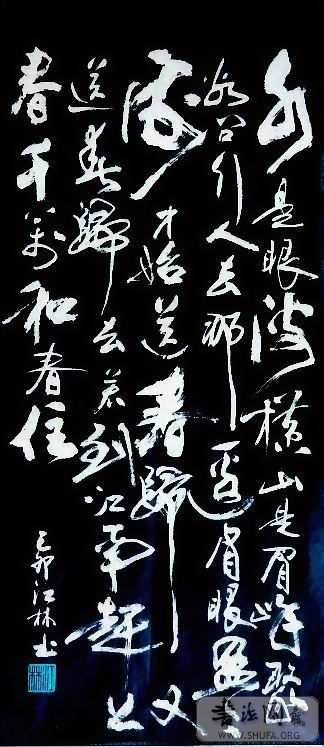 水是眼波横山是眉峰聚
欲问行人去那邊眉眼盈盈
處才始送春歸又
送君歸去若到江南趕上
春千萬和春住
己卯江林书
书法网
WWW.SHUFA.ORG